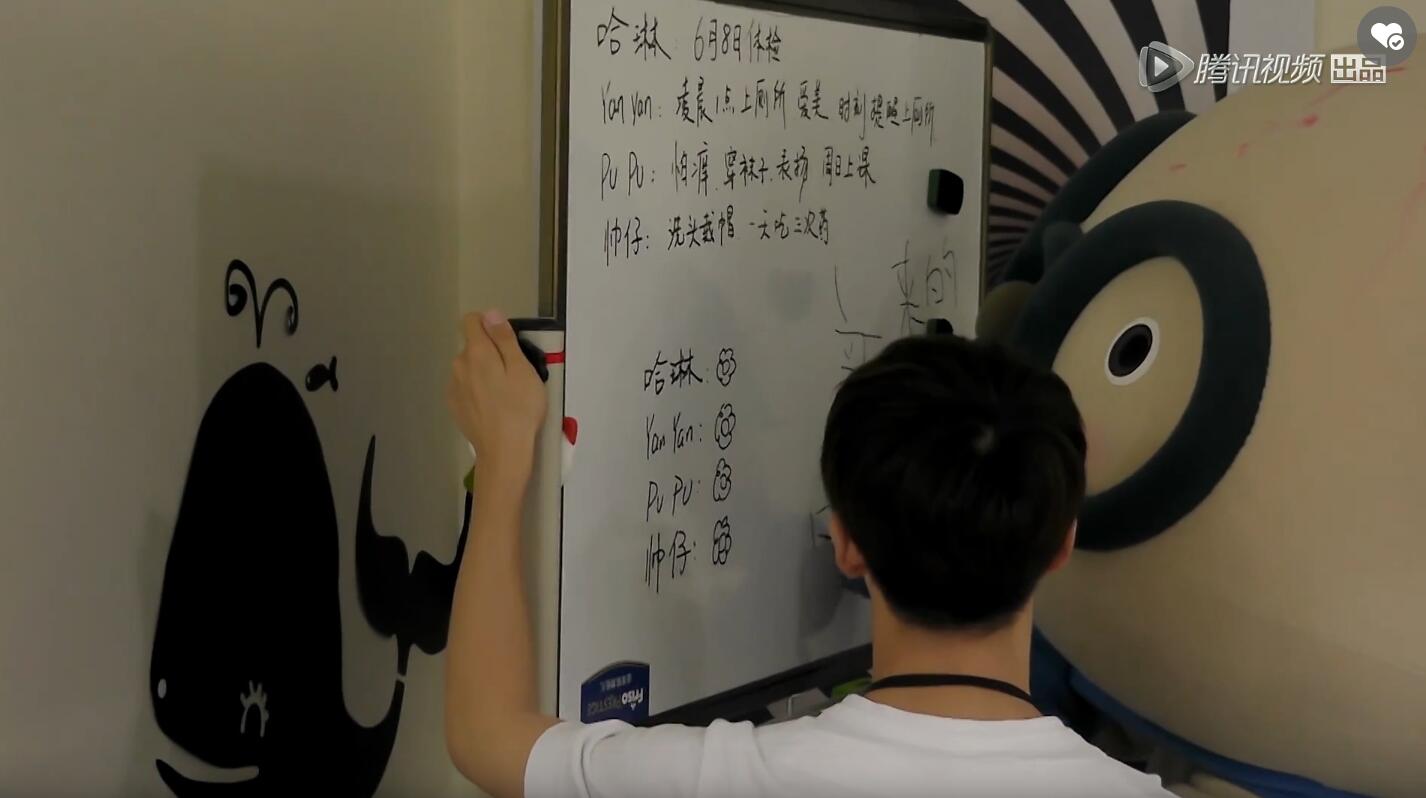 腾讯视频 出品
哈琳: 6月8日体检
Yan Yan: 凌晨1点上厕所 爱美 时刻提醒上厕所
PU PU: 怕痒.穿袜子.表扬 周日上课
帅仔: 洗头戴帽 一天吃三次药
来的
哥
哈琳:
Yan Yan:
PU PU:
帅仔:
Friso PRESTIGE